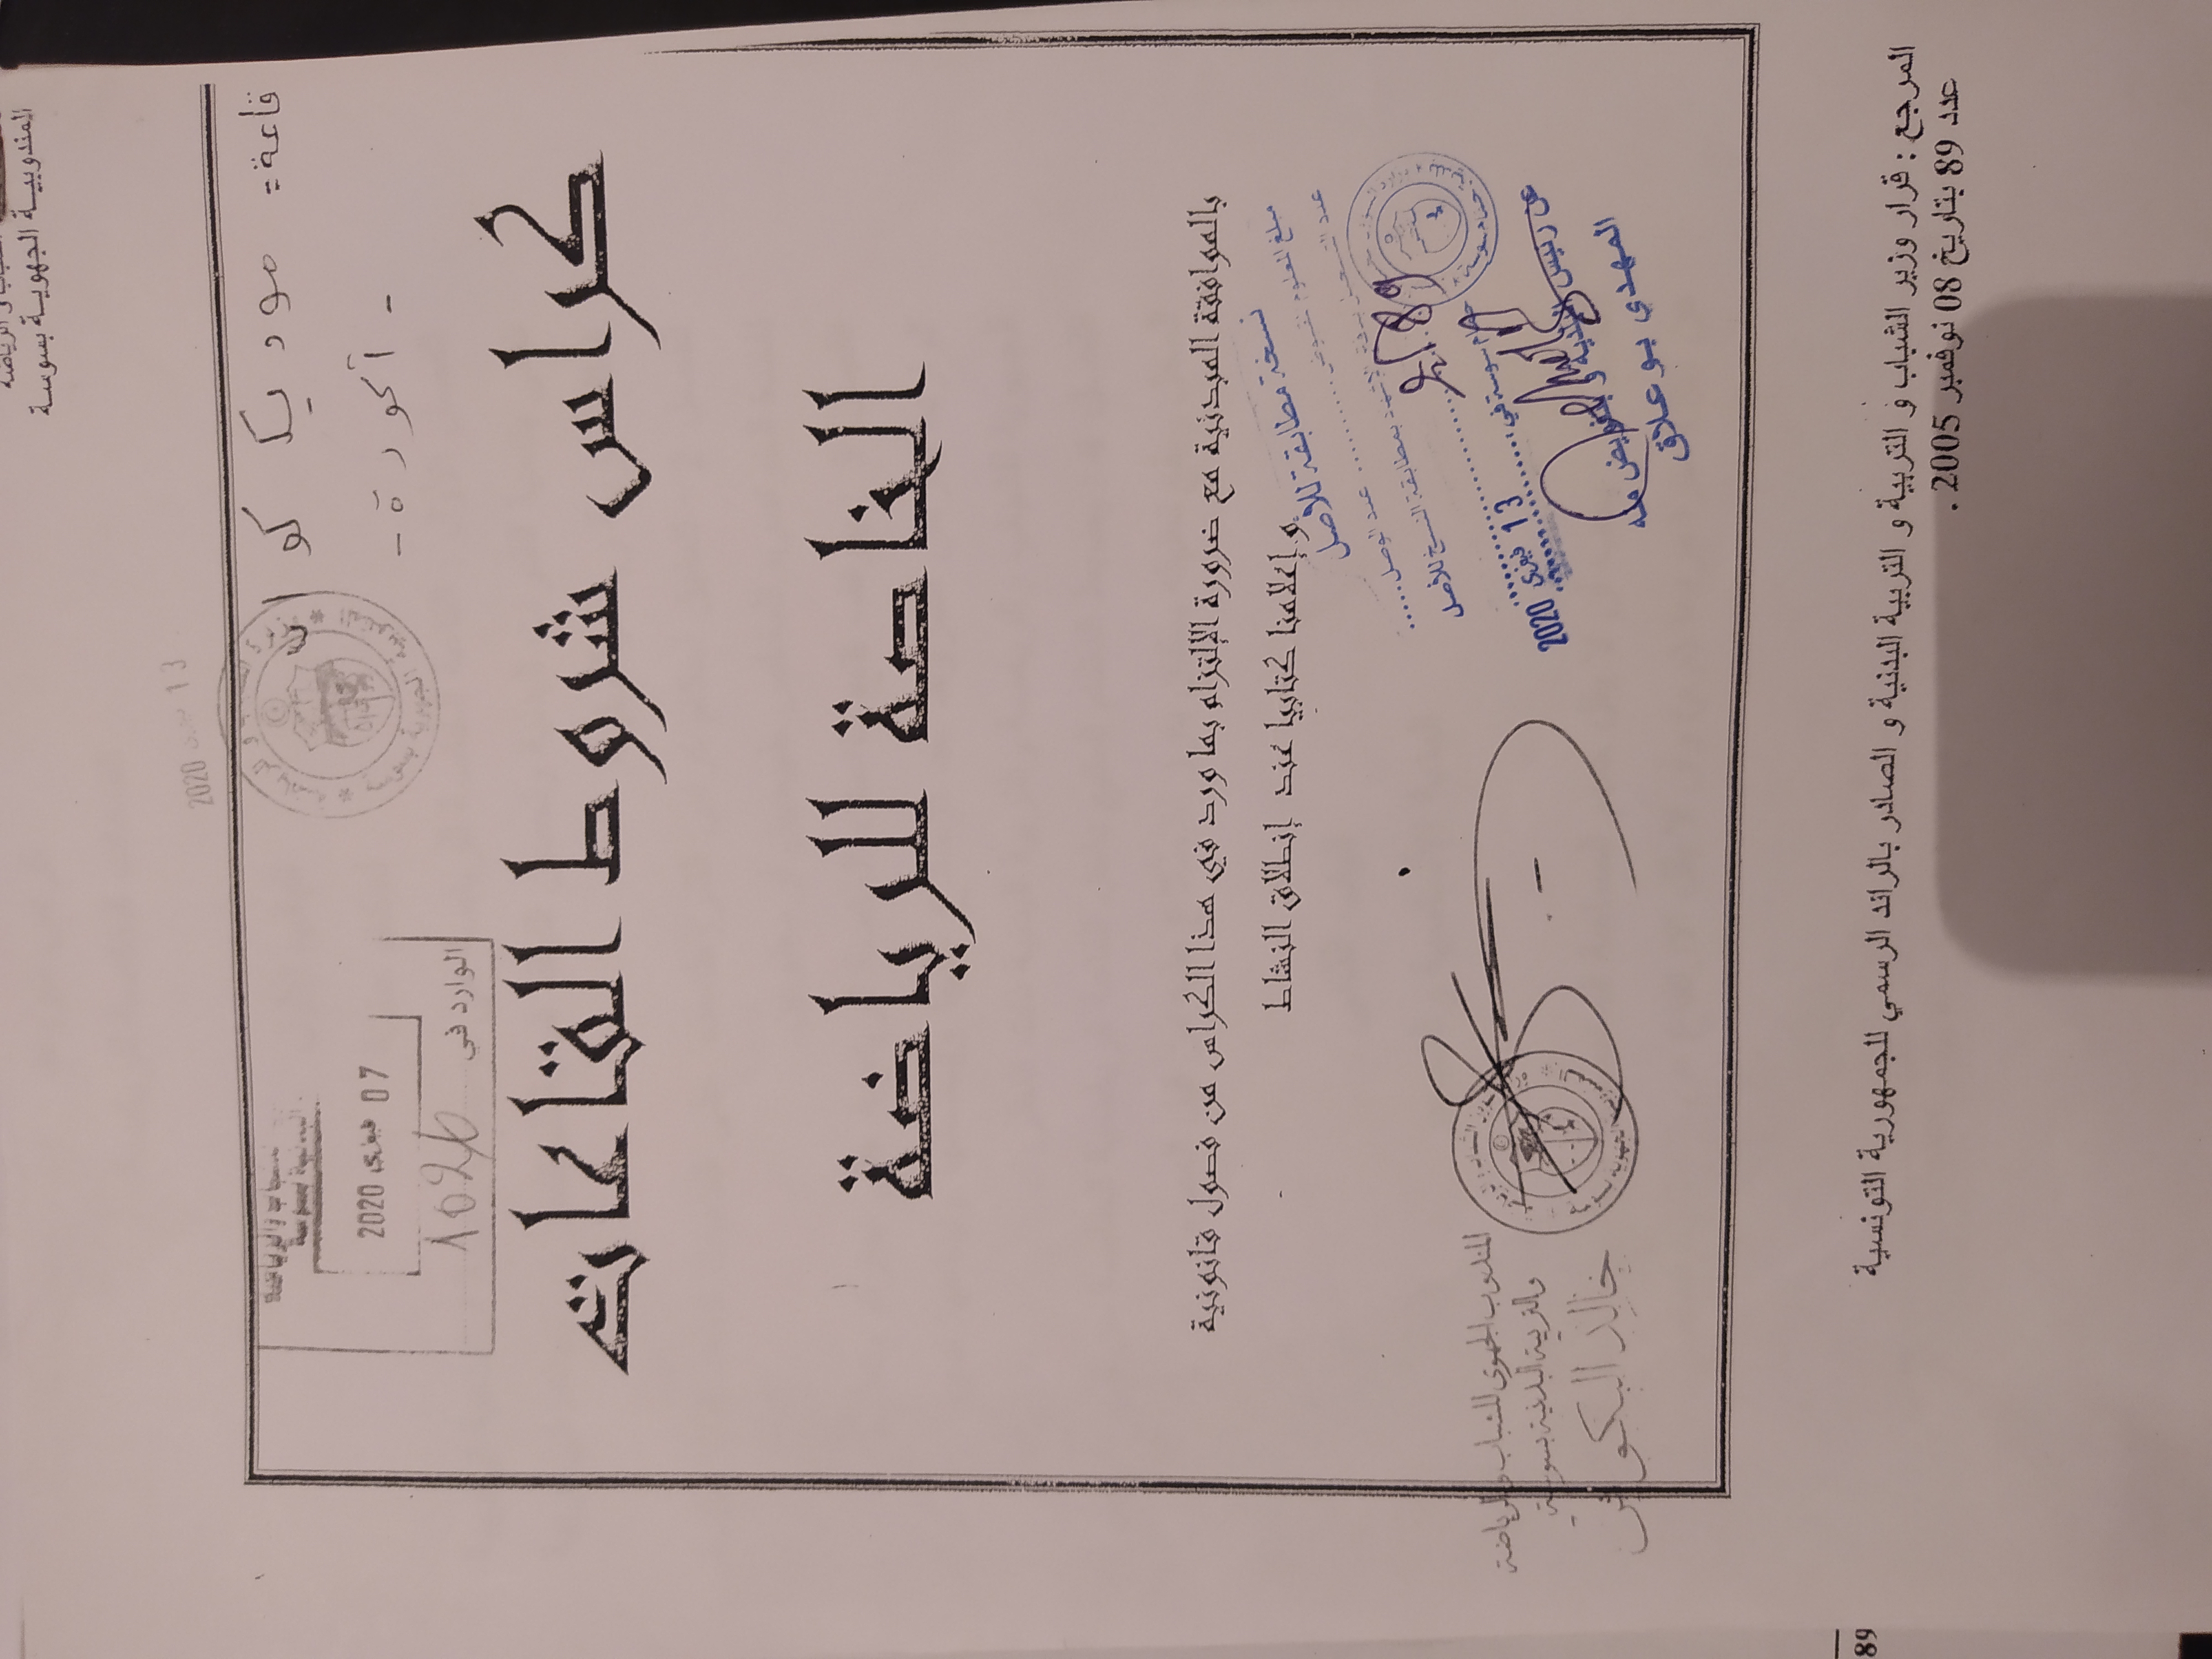 المندوبية الجهوية بسوسة
قاعة: موديكو
- أكودة -
الوارد في
07 فيفري 2020
13 2020
كراس شروط القاعات
الخاصة للرياضة
بالموافقة المبدئية مع ضرورة الإلتزام بما ورد في هذا الكراس من فصول قانونية
و إعلامنا كتابيا عند إنطلاق النشاط
نسخة مطابقة للأصل
13 فيفري 2020
المهدي بوعلاق
المندوب الجهوي للشباب والرياضة
والتربية البدنية بسوسة
خالد البكوش
المرجع : قرار وزير الشباب و التربية و التربية البدنية و الصادر بالرائد الرسمي للجمهورية التونسية
عدد 89 بتاريخ 08 نوفمبر 2005 .
89